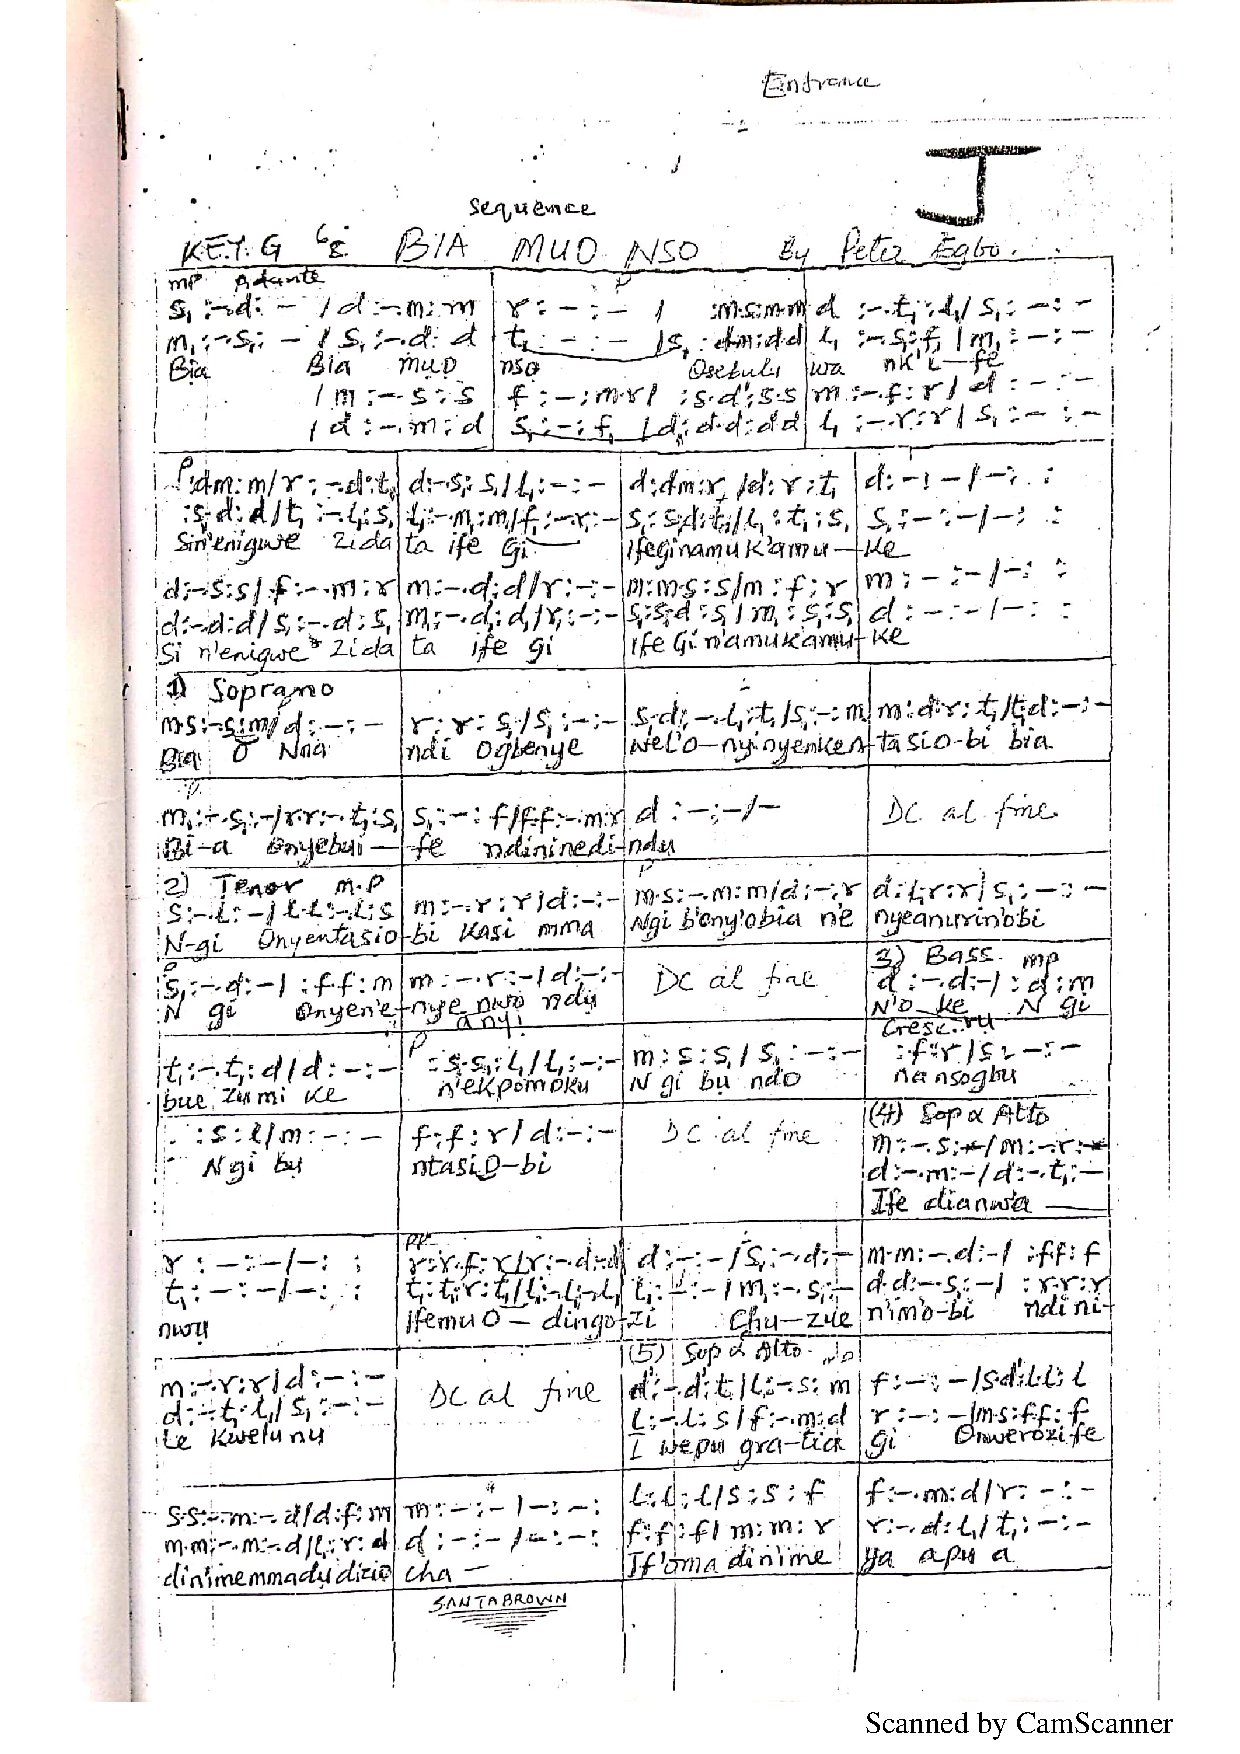 Entrance
J
Sequence
KEY. G 6/8 BIA MUO NSO By Peter Egbo.
mp Adante
s, :-.d: - / d :-.m: m | r : - : - / :m.s:m.m | d :-.t, :d,/ s, : - : -
m, :-.s,: - / s, :-.d: d | t, : - : - /s, : dm:dd | l, :-.s,:f, / m, : - : -
Bia Bia muo nso Osebulu wa nk'i-fe
/ m :-.s : s | f : - : m.r/ :s.d':s.s | m :-.f: r / d : - : -
/ d :-.m: d | s, : - : f, /d, d.d:dd | l, :-.r:r / s, : - : -
P
:dm: m/ r : -.d:t, | d:-.s,: s,/ l, : - : - | d:dm:r, /d: r :t, | d: - : - / - : :
:s,:d: d/ t, :-.l,: s, | l,:-.m,:m,/f, :-.r,:- | s,: s,d:t,/l, : t, : s, | s, : - : - / - : :
Sin'enigwe Zida ta ife Gi Ifeginamuk'amu-ke
d:-.s:s / f :-.m: r | m:-.d:d/r:-:- | m:m.s:s/m : f : r | m : - : - / - : :
d:-.d:d/ s, :-.d: s, | m,:-.d,:d,/r,:-:- | s,:s,d :s,/ m, : s,:s, | d : - : - / - : :
Si n'enigwe Zida ta ife gi Ife Gi n'amukamu-ke
1) Soprano
m.s:-.s:m/ d : - : - | r : r : s, / s, : - : - | s,.d:-.l,:t,/s,:-:m | m:d.r:t,/t,d:-:-
Bia O Nna ndi Ogbenye Nel'o-nyinyenken-tasio-bi bia
m,:-.s,:-/r.r:-.t,:s, | s, : - : f/f.f:-.m:r | d : - : - / - DC al fine
Bi-a Onyebui-fe ndininedi-ndu
2) Tenor m.p
s:-.l:-/ l.l:-.l:s | m:-.r : r/d : - : - | m.s:-.m:m/d:-:r | d:l,:r:r/ s, : - : -
N-gi Onyentasio-bi Kasi mma Ngi b'ony'obia n'e nyeanurin'obi
P 3) Bass. mp
s,:-.d:-/ :f.f: m | m:-.r:-/ d:-:- DC al fine d :-.d:-/ : d : m
N gi Onyen'e-nye nwo ndu N'o_ke N gi
anyi
P Cresc.
t,:-.t,:d / d : - : - | : s,.s,:l,/ l,:-:- | m : s : s, / s, : - : - | :f:r / s : - : -
bue zumi ke n'ekpomoku N gi bu ndo na nsogbu
: s : l / m : - : - | f: f : r / d : - : - DC al fine (4) Sop & Alto
N gi bu ntasiO-bi m:-.s:-/m:-.r:-
d:-.m:-/ d:-.t,:-
Ife dianwa
pp
r : - : - / - : : | r:r.f:r/r:-.d:d | d : - : - / s,:-.d:- | m.m:-.d:-/ :f.f: f
t, : - : - / - : : | t,:t,r:t,/l,:-.l,:l, | t, : - : - / m,:-.s,:- | d.d:-.s,:-/ :r.r:r
nwu Ifemu O-dingo-zi Chu-zue nimo-bi ndi ni-
(5) Sop & Alto
m:-.r:r/ d : - : - DC al fine d':-.d':t / l:-.s: m | f : - : - /s.d':l.l: l
d:-.t,:l,/ s, : - : - l:-.l: s / f:-.m:d | r : - : - /m.s:f.f: f
le Kwelunu I wepu gra-tia gi Onwerozife
s.s:-.m:-.d/d:f:m | m : - : - / - : - : | l:l:l/s : s : f | f:-.m:d/r: - : -
m.m:-.m:-.d/l,:r:d | d : - : - / - : - : | f:f:f/ m:m: r | r:-.d:l,/ t,: - : -
din'imemmadudizio cha - If'oma dinime ya apu a
SANTABROWN
Scanned by CamScanner